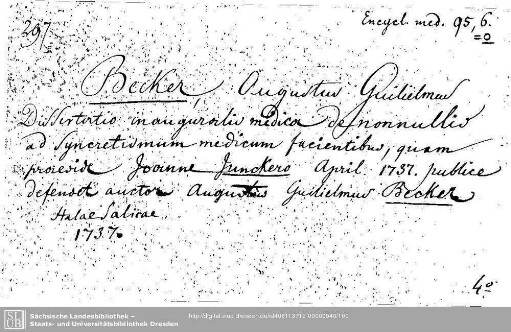 297
Encycl. med. 95, 6.
=0
Becker, Augustus Guilielmus
Dissertatio inauguralis medica de nonnullis
ad Syncretismum medicum facientibus, quam
praeside Joanne Junckero April. 1737. publice
defendet auctor Augustus Guilielmus Becker
Halae Salicae
1737.
4º
Sächsische Landesbibliothek –
Staats- und Universitätsbibliothek Dresden